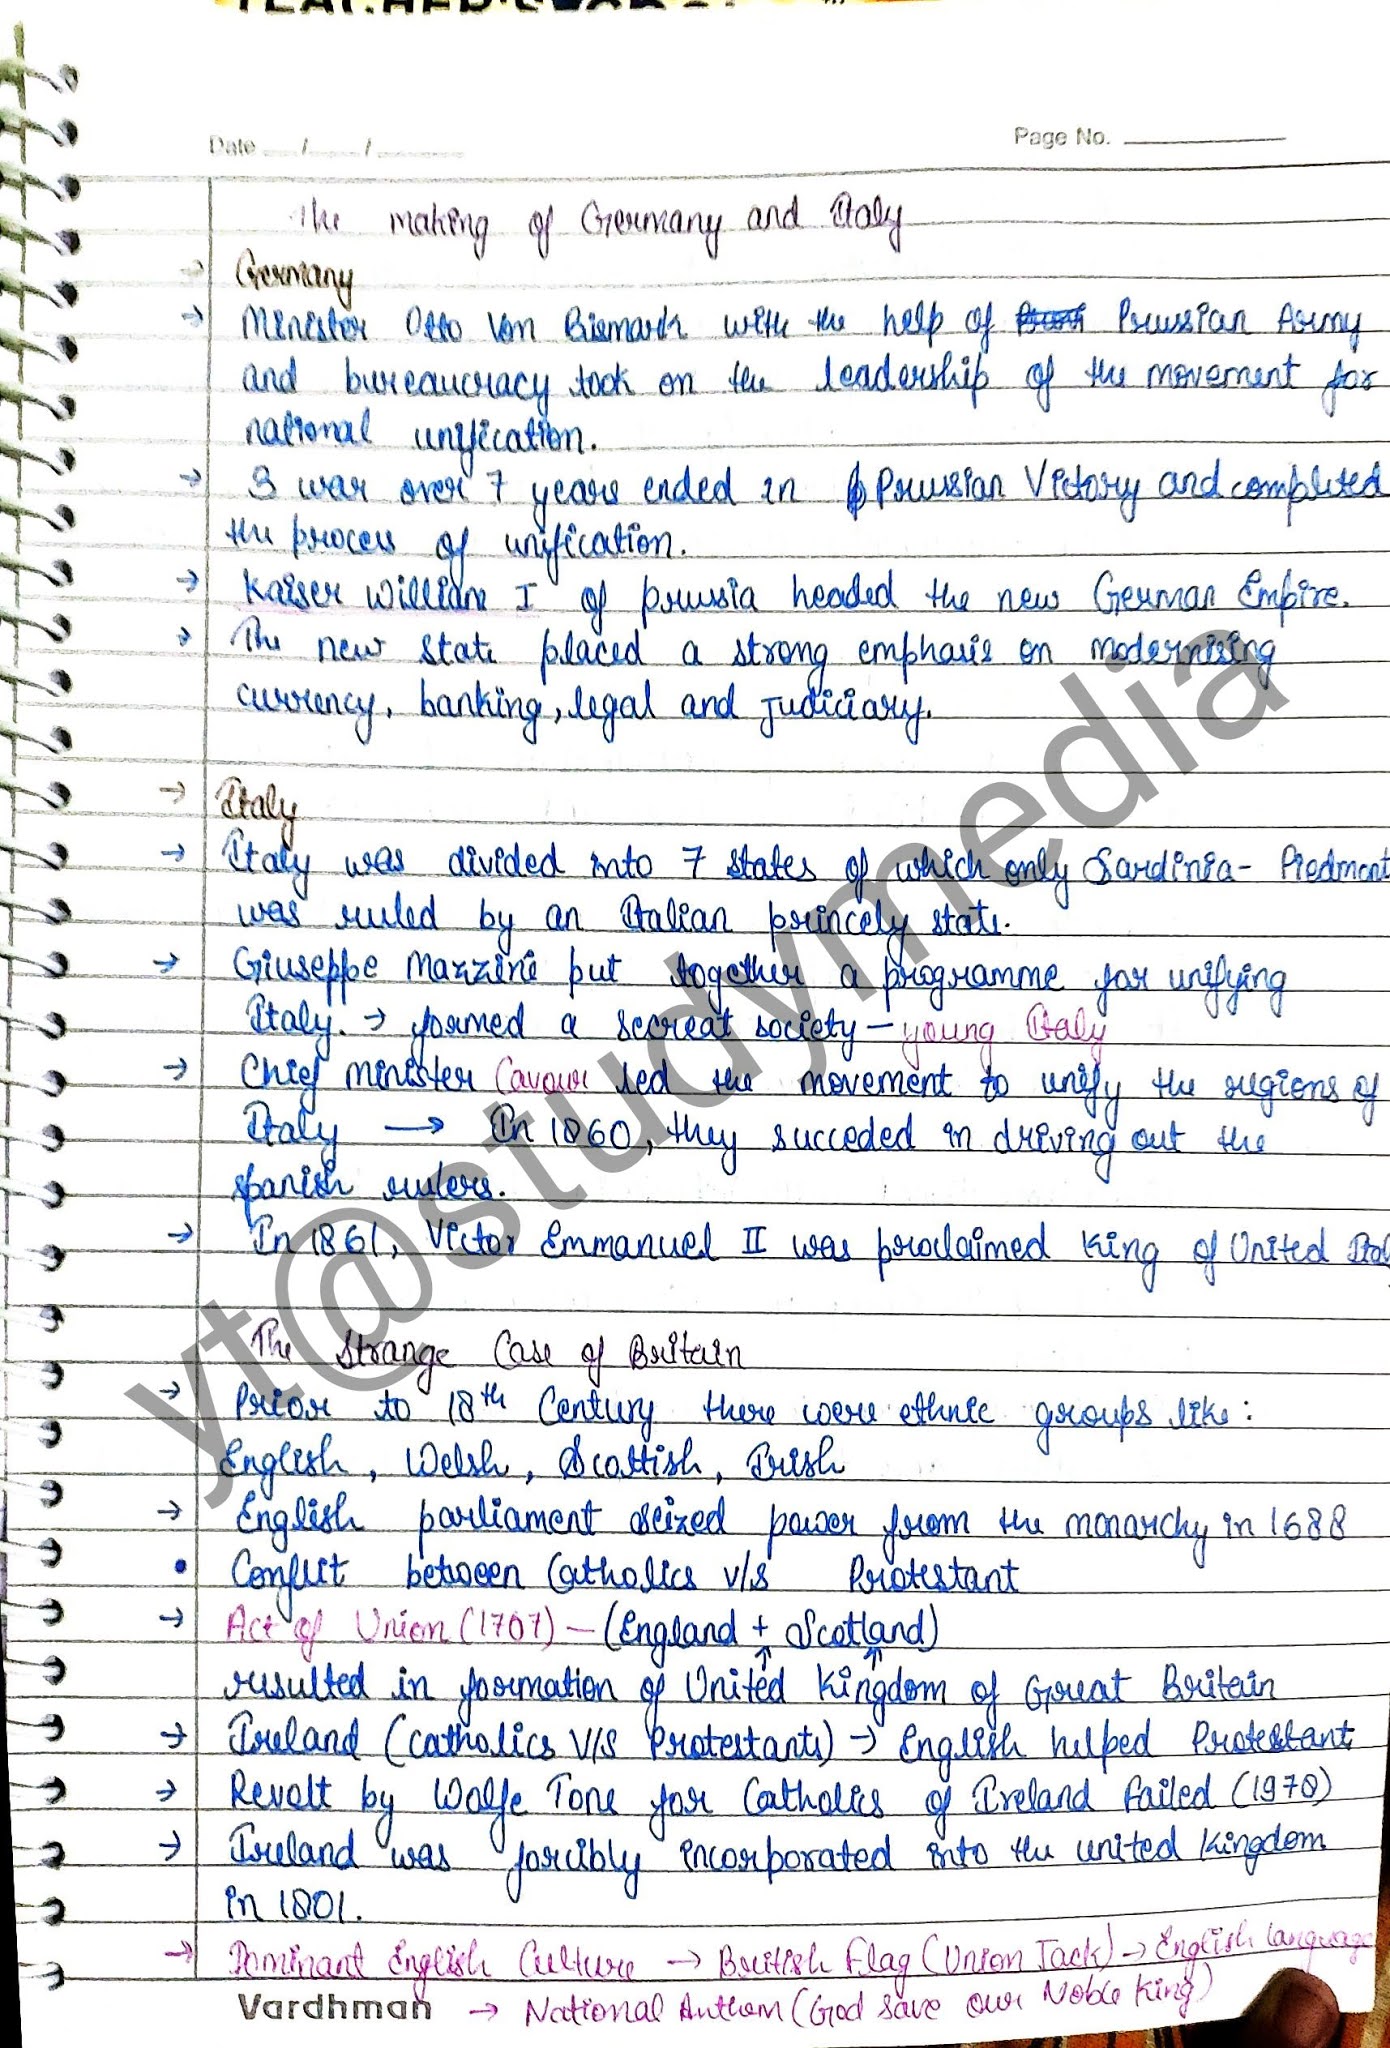 Date __/__/____
Page No. ________
The making of Germany and Italy
→ Germany
→ Minister Otto Von Bismark with the help of Prussian Army
and bureaucracy took on the leadership of the movement for
national unification.
→ 3 war over 7 years ended in Prussian Victory and completed
the process of unification.
→ Kaiser William I of prussia headed the new German Empire.
→ The new state placed a strong emphasis on modernising
currency, banking, legal and judiciary.
→ Italy
→ Italy was divided into 7 states of which only Sardinia- Piedmont
was ruled by an Italian princely state.
→ Giuseppe Mazzini put together a programme for unifying
Italy. → formed a secreat society – young Italy
→ Chief minister Cavour led the movement to unify the regions of
Italy → In 1860, they succeded in driving out the
spanish rulers.
→ In 1861, Victor Emmanuel II was proclaimed king of United Ital
The Strange Case of Britain
→ Prior to 18th Century there were ethnic groups like:
English, Welsh, Scottish, Irish
→ English parliament seized power from the monarchy in 1688
• Conflict between Catholics v/s Protestant
→ Act of Union (1707) – (England + Scotland)
resulted in formation of United Kingdom of Great Britain
→ Ireland (catholics V/S Protestants) → English helped Protestant
→ Revolt by Wolfe Tone for Catholics of Ireland failed (1978)
→ Ireland was forcibly incorporated into the united kingdom
in 1801.
→ Dominant English Culture → British Flag (Union Jack) → English language
Vardhman → National Anthem (God save our Noble King)
yt@studymedia